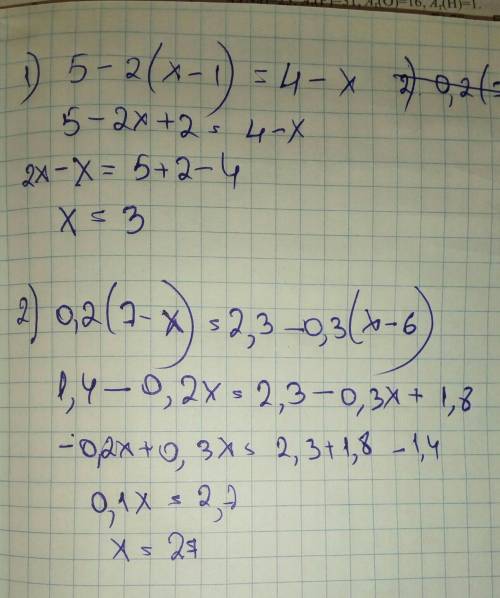 1) 5 - 2(x - 1) = 4 - x
5 - 2x + 2 = 4 - x
2x - x = 5 + 2 - 4
x = 3
2) 0,2(7 - x) = 2,3 - 0,3(x - 6)
1,4 - 0,2x = 2,3 - 0,3x + 1,8
-0,2x + 0,3x = 2,3 + 1,8 - 1,4
0,1x = 2,7
x = 27